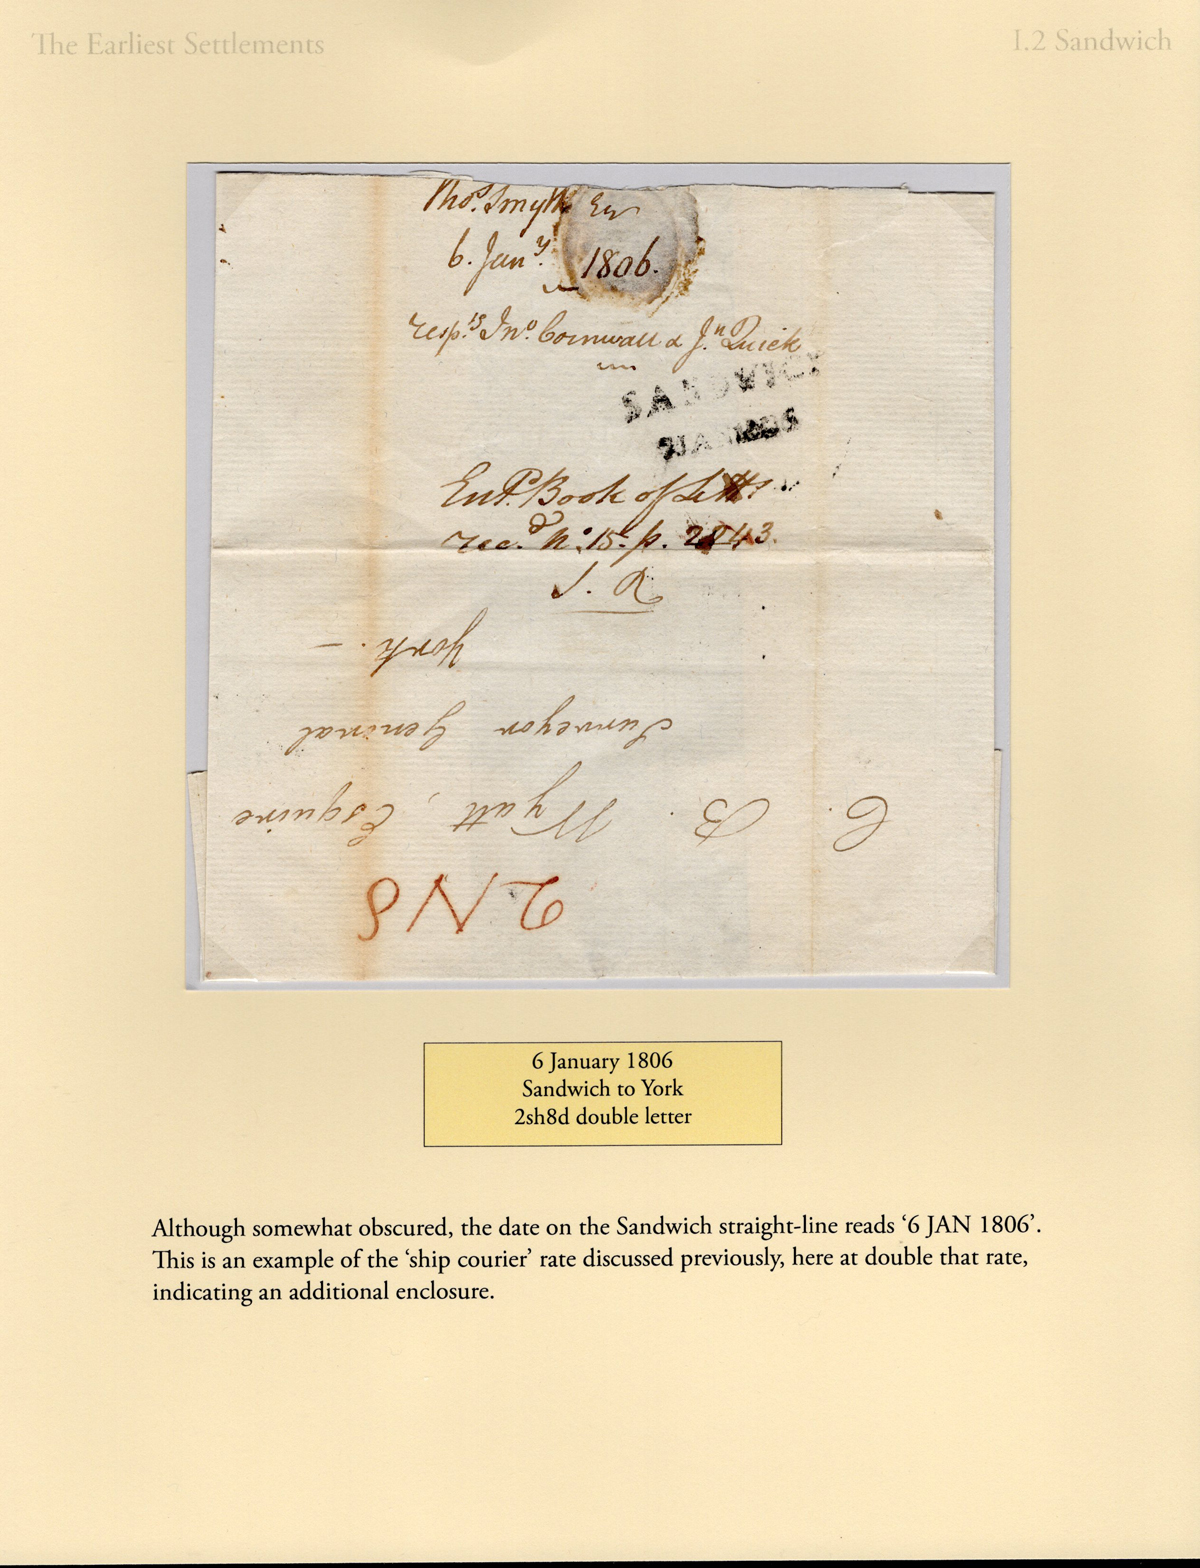 The Earliest Settlements
I.2 Sandwich
Thos. Smyth Esq
6. Jany. 1806.
respg. Jno. Cornwall & Jn. Quick
SANDWICH
Entd. Book of Letts
recd. No. 15. p. 2843.
J. R
C. B. Wyatt, Esquire
Surveyor General
York. —
2 N 8
6 January 1806
Sandwich to York
2sh8d double letter
Although somewhat obscured, the date on the Sandwich straight-line reads ‘6 JAN 1806’.
This is an example of the ‘ship courier’ rate discussed previously, here at double that rate,
indicating an additional enclosure.